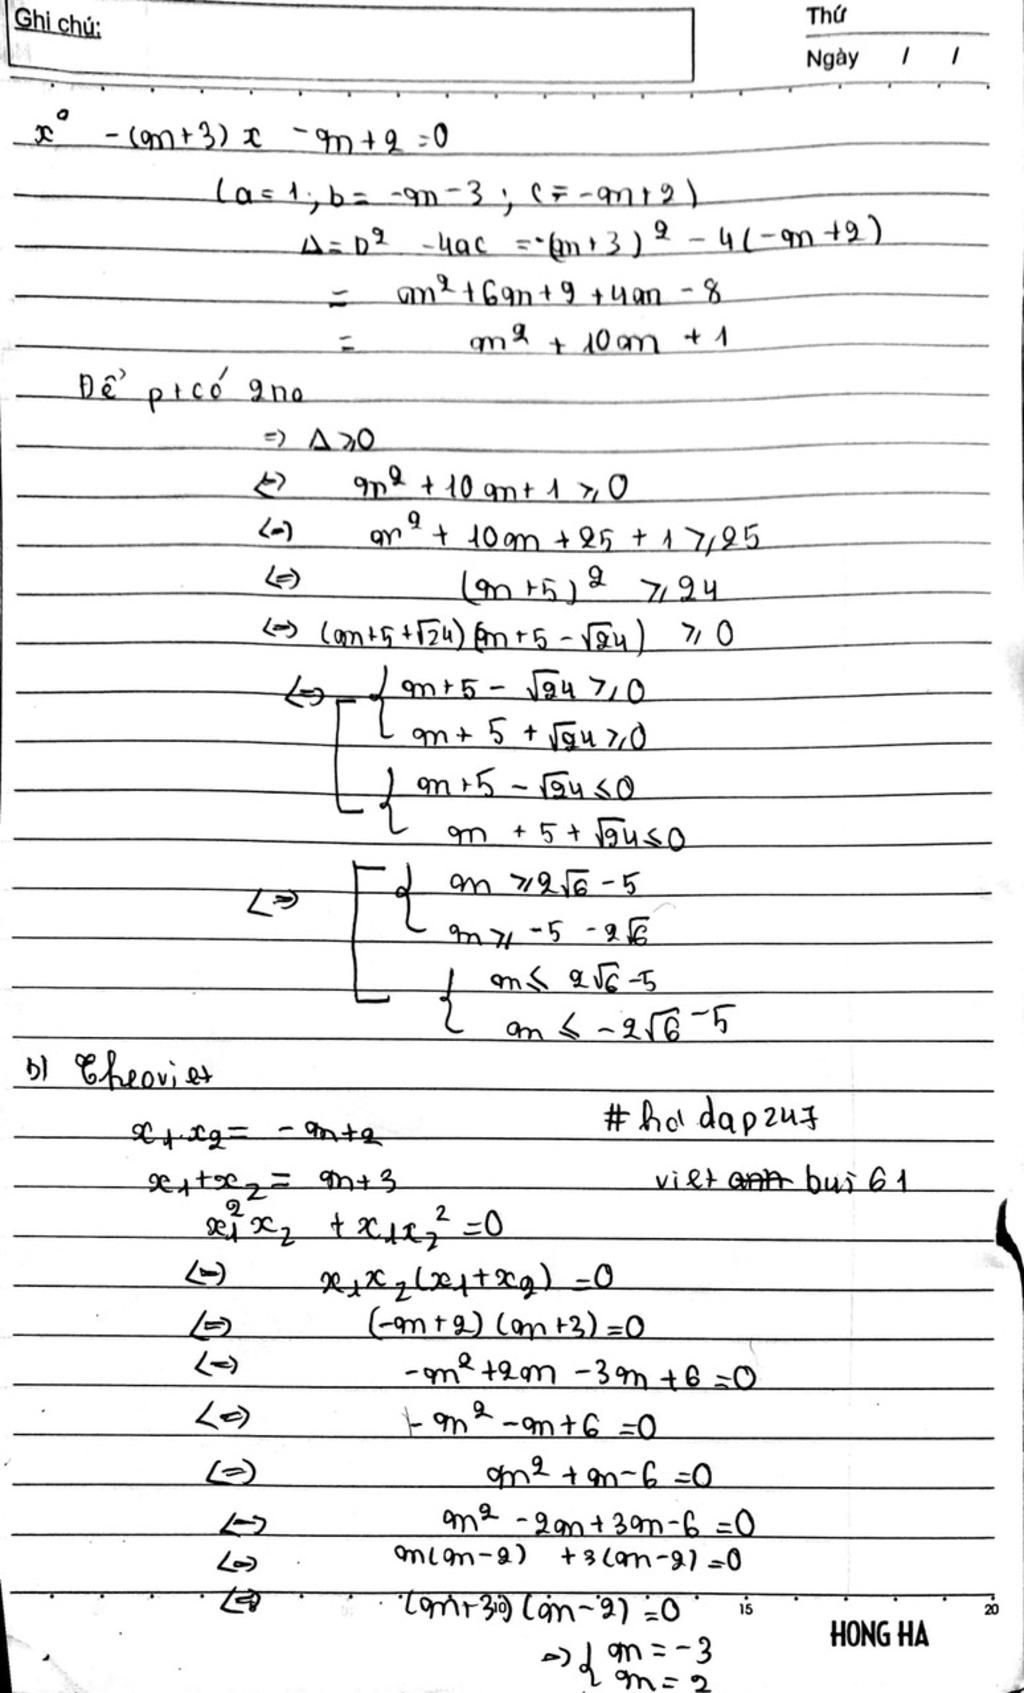 Ghi chú:
Thứ
Ngày / /
x² - (m+3) x - m+2 =0
(a=1; b= -m-3; c= -m+2)
Δ= b² -4ac = (m+3)² - 4(-m+2)
= m²+6m+9 +4m - 8
= m² + 10m + 1
Để pt có 2no
=> Δ≥0
<=> m² + 10m + 1 ≥ 0
<=> m² + 10m + 25 + 1 ≥ 25
<=> (m+5)² ≥ 24
<=> (m+5+√24)(m+5-√24) ≥ 0
<=> [ { m+5 - √24 ≥ 0
m + 5 + √24 ≥ 0
{ m+5 - √24 ≤ 0
m + 5 + √24 ≤ 0
<=> [ { m ≥ 2√6 - 5
m ≥ -5 - 2√6
{ m ≤ 2√6 - 5
m ≤ -2√6 - 5
b) Theo viet
x₁.x₂ = - m+2
# hoi dap 247
x₁+x₂ = m+3
viet anh bui 61
x₁²x₂ + x₁x₂² = 0
<=> x₁x₂(x₁+x₂) = 0
<=> (-m+2)(m+3)=0
<=> -m²+2m -3m+6=0
<=> - m² -m+6 =0
<=> m² +m-6 =0
<=> m² -2m+3m-6=0
<=> m(m-2) +3(m-2)=0
<=> (m+3)(m-2)=0
10 15 20
HONG HA
=> { m = -3
m = 2